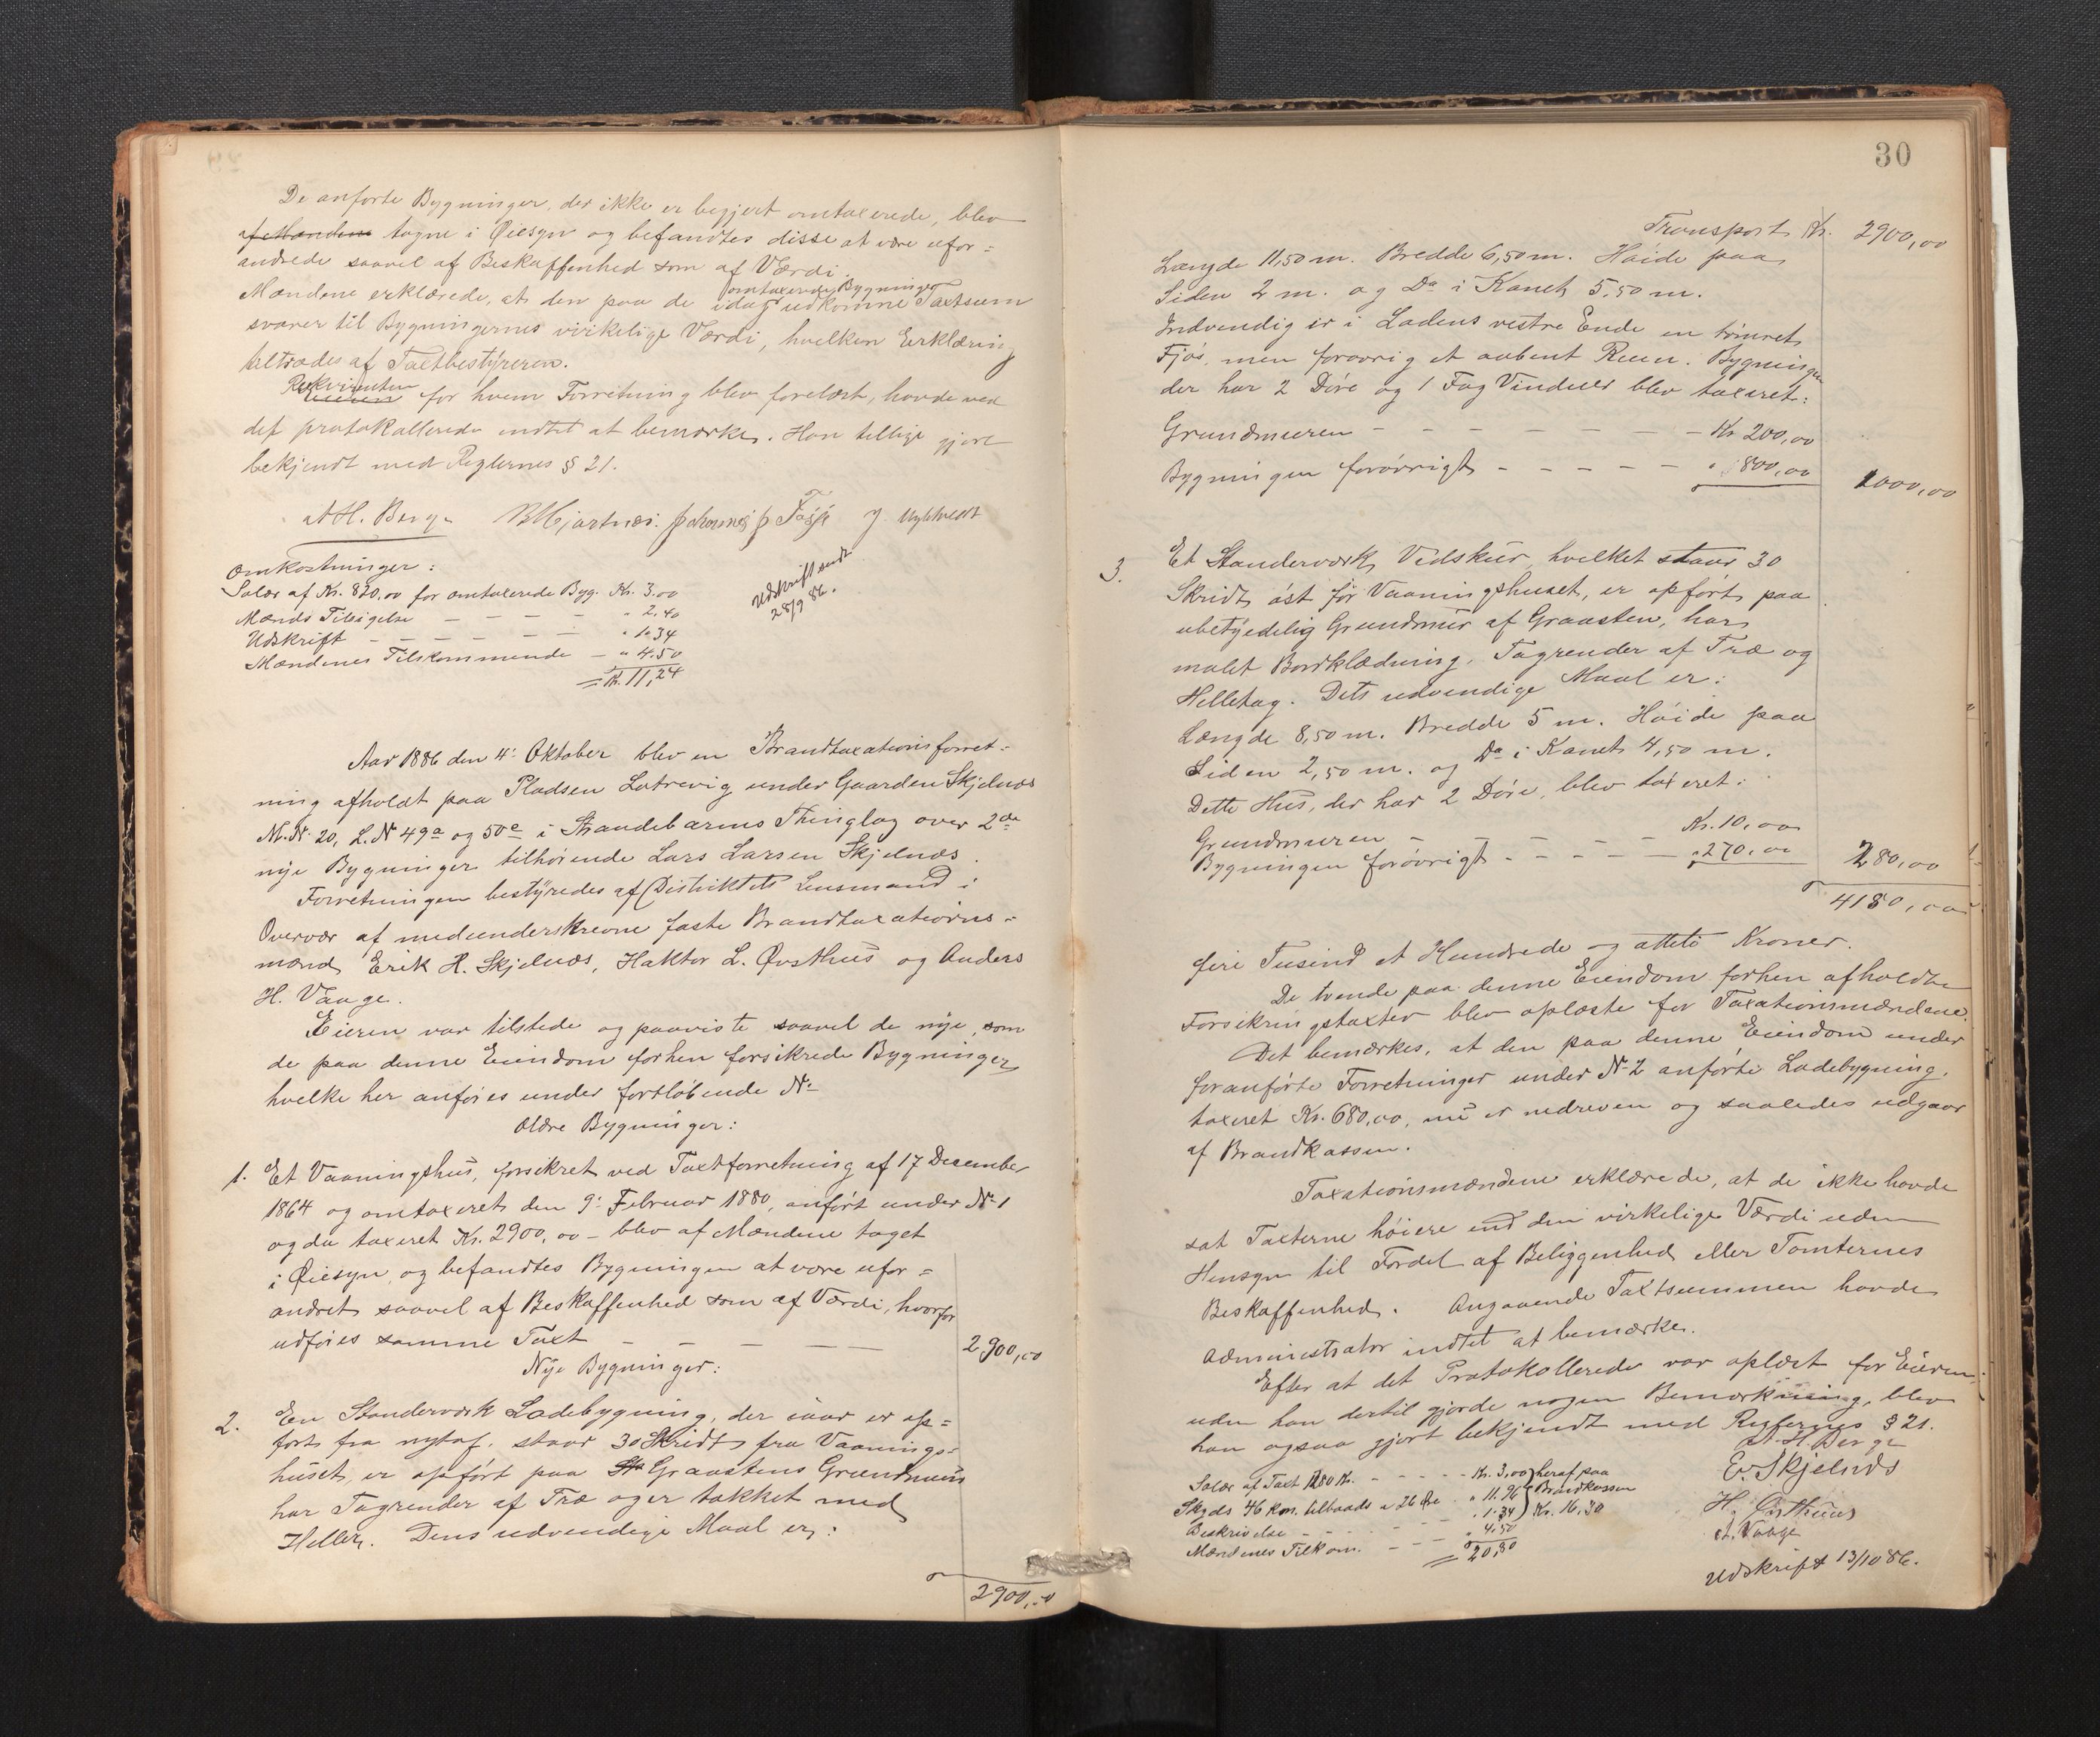 De anførte Bygninger, der ikke er begjert omtaxerede, blev
af Mændene tagne i Øiesyn og befandtes disse at være ufor=
andrede saavel af Beskaffenhed som af Værdi.
Mændene erklærede, at den paa de idag omtaxerede Bygninger udkomne Taxtsum
svarer til Bygningernes virkelige Værdi, hvilken Erklæring
tiltrædes af Taxtbestyreren.
Rekvirenten for hvem Forretning blev forelæst, havde ved
det protokollerede indtet at bemærke. Han tillige gjort
bekjendt med Reglernes § 21.
A H. Berge
Omkostninger:
Salær af Kr. 820,00 for omtaxerede Byg. Kr. 3.00
Mænds Tilsigelse — — — — " 2.40
Udskrift — — — — — " 1.34
Mændenes Tilkommende — " 4.50
Kr. 11,24
Udskrift sendt
28/9 86.
Aar 1886 den 4: Oktober blev en Brandtaxationsforret=
ning afholdt paa Pladsen Lutrevig under Gaarden Skjelnæs
M. N: 20, L. N 49a og 50e i Strandebarms Thinglag over 2de
nye Bygninger tilhørende Lars Larsen Skjelnæs.
Forretningen bestyredes af Distriktets Lensmand i
Overvær af medunderskrevne faste Brandtaxations=
mænd Erik H. Skjelnæs, Haktor L. Øvsthus og Anders
H. Vaage.
Eieren var tilstede og paaviste saavel de nye, som
de paa denne Eiendom forhen forsikrede Bygninger
hvilke her anføres under fortløbende N:
Ældre Bygninger:
1. Et Vaaningshus, forsikret ved Taxtforretning af 17 December
1864 og omtaxeret den 9: Februar 1880, anført under N: 1
og da taxeret Kr. 2900,00 – blev af Mændene taget
i Øiesyn, og befandtes Bygningen at være ufor=
andret saavel af Beskaffenhed som af Værdi, hvorfor
udføres samme Taxt — — — — 2900,00
Nye Bygninger:
2. En Standerværk Ladebygning, der iaar er op=
ført fra nytaf, staar 30 Skridt fra Vaanings=
huset, er opført paa Graastens Grundmur
har Tagrender af Træ og er takket med
Heller. Dens udvendige Maal er:
2900,00
30
Transport Kr. 2900,00
Længde 11,50 m. Bredde 6,50 m. Høide paa
Siden 2 m. og Do i Kanet 5,50 m.
Indvendig er i Ladens vestre Ende en tømret
Fjøs, men forøvrig et aabent Rum. Bygningen
der har 2 Døre og 1 Fag Vinduer blev taxeret:
Grundmuren — — — — — — Kr 200,00
Bygningen forøvrigt — — — — — " 800,00
1000,00
3. Et Standerværk Vedskur, hvilket staar 30
Skridt øst for Vaaningshuset, er opført paa
ubetydelig Grundmur af Graasten, har
malet Bordklædning, Tagrender af Træ og
Helletag. Dets udvendige Maal er:
Længde 8,50 m. Bredde 5 m. Høide paa
Siden 2,50 m. og Do i Kanet 4,50 m.
Dette Hus, der har 2 Døre, blev taxeret:
Grundmuren — — — — Kr. 10,00
Bygningen forøvrigt — — — — " 270,00
280,00
4180,00
fire Tusind et Hundrede og otteti Kroner.
De tvende paa denne Eiendom forhen afholdte
Forsikringstaxter blev oplæste for Taxationsmændene.
Det bemærkes, at den paa denne Eiendom under
foranførte Forretninger under N: 2 anførte Ladebygning,
taxeret Kr. 680,00, nu er nedreven og saaledes udgaar
af Brandkassen.
Taxationsmændene erklærede, at de ikke havde
sat Taxterne høiere end den virkelige Værdi uden
Hensyn til Fordel af Beliggenhed eller Tomternes
Beskaffenhed. Angaaende Taxtsummen havde
Administrator indtet at bemærke.
Efter at det Protokollerede var oplæst for Eieren,
uden han dertil gjorde nogen Bemærkning, blev
han ogsaa gjort bekjendt med Reglernes § 21.
A. H. Berge
E. Skjelnæs
H. Østhuus
A. Vaage
Salær af Taxt 1280 Kr. — — — — Kr. 3,00 heraf paa
Skyds 46 km. tilbaads a 26 Øre " 11.96 Brandkassen
Beskrivelse — — — — " 1.34 Kr. 16,30
Mændenes Tilkom. — — — " 4.50
20,80
Udskrift 13/10 86.